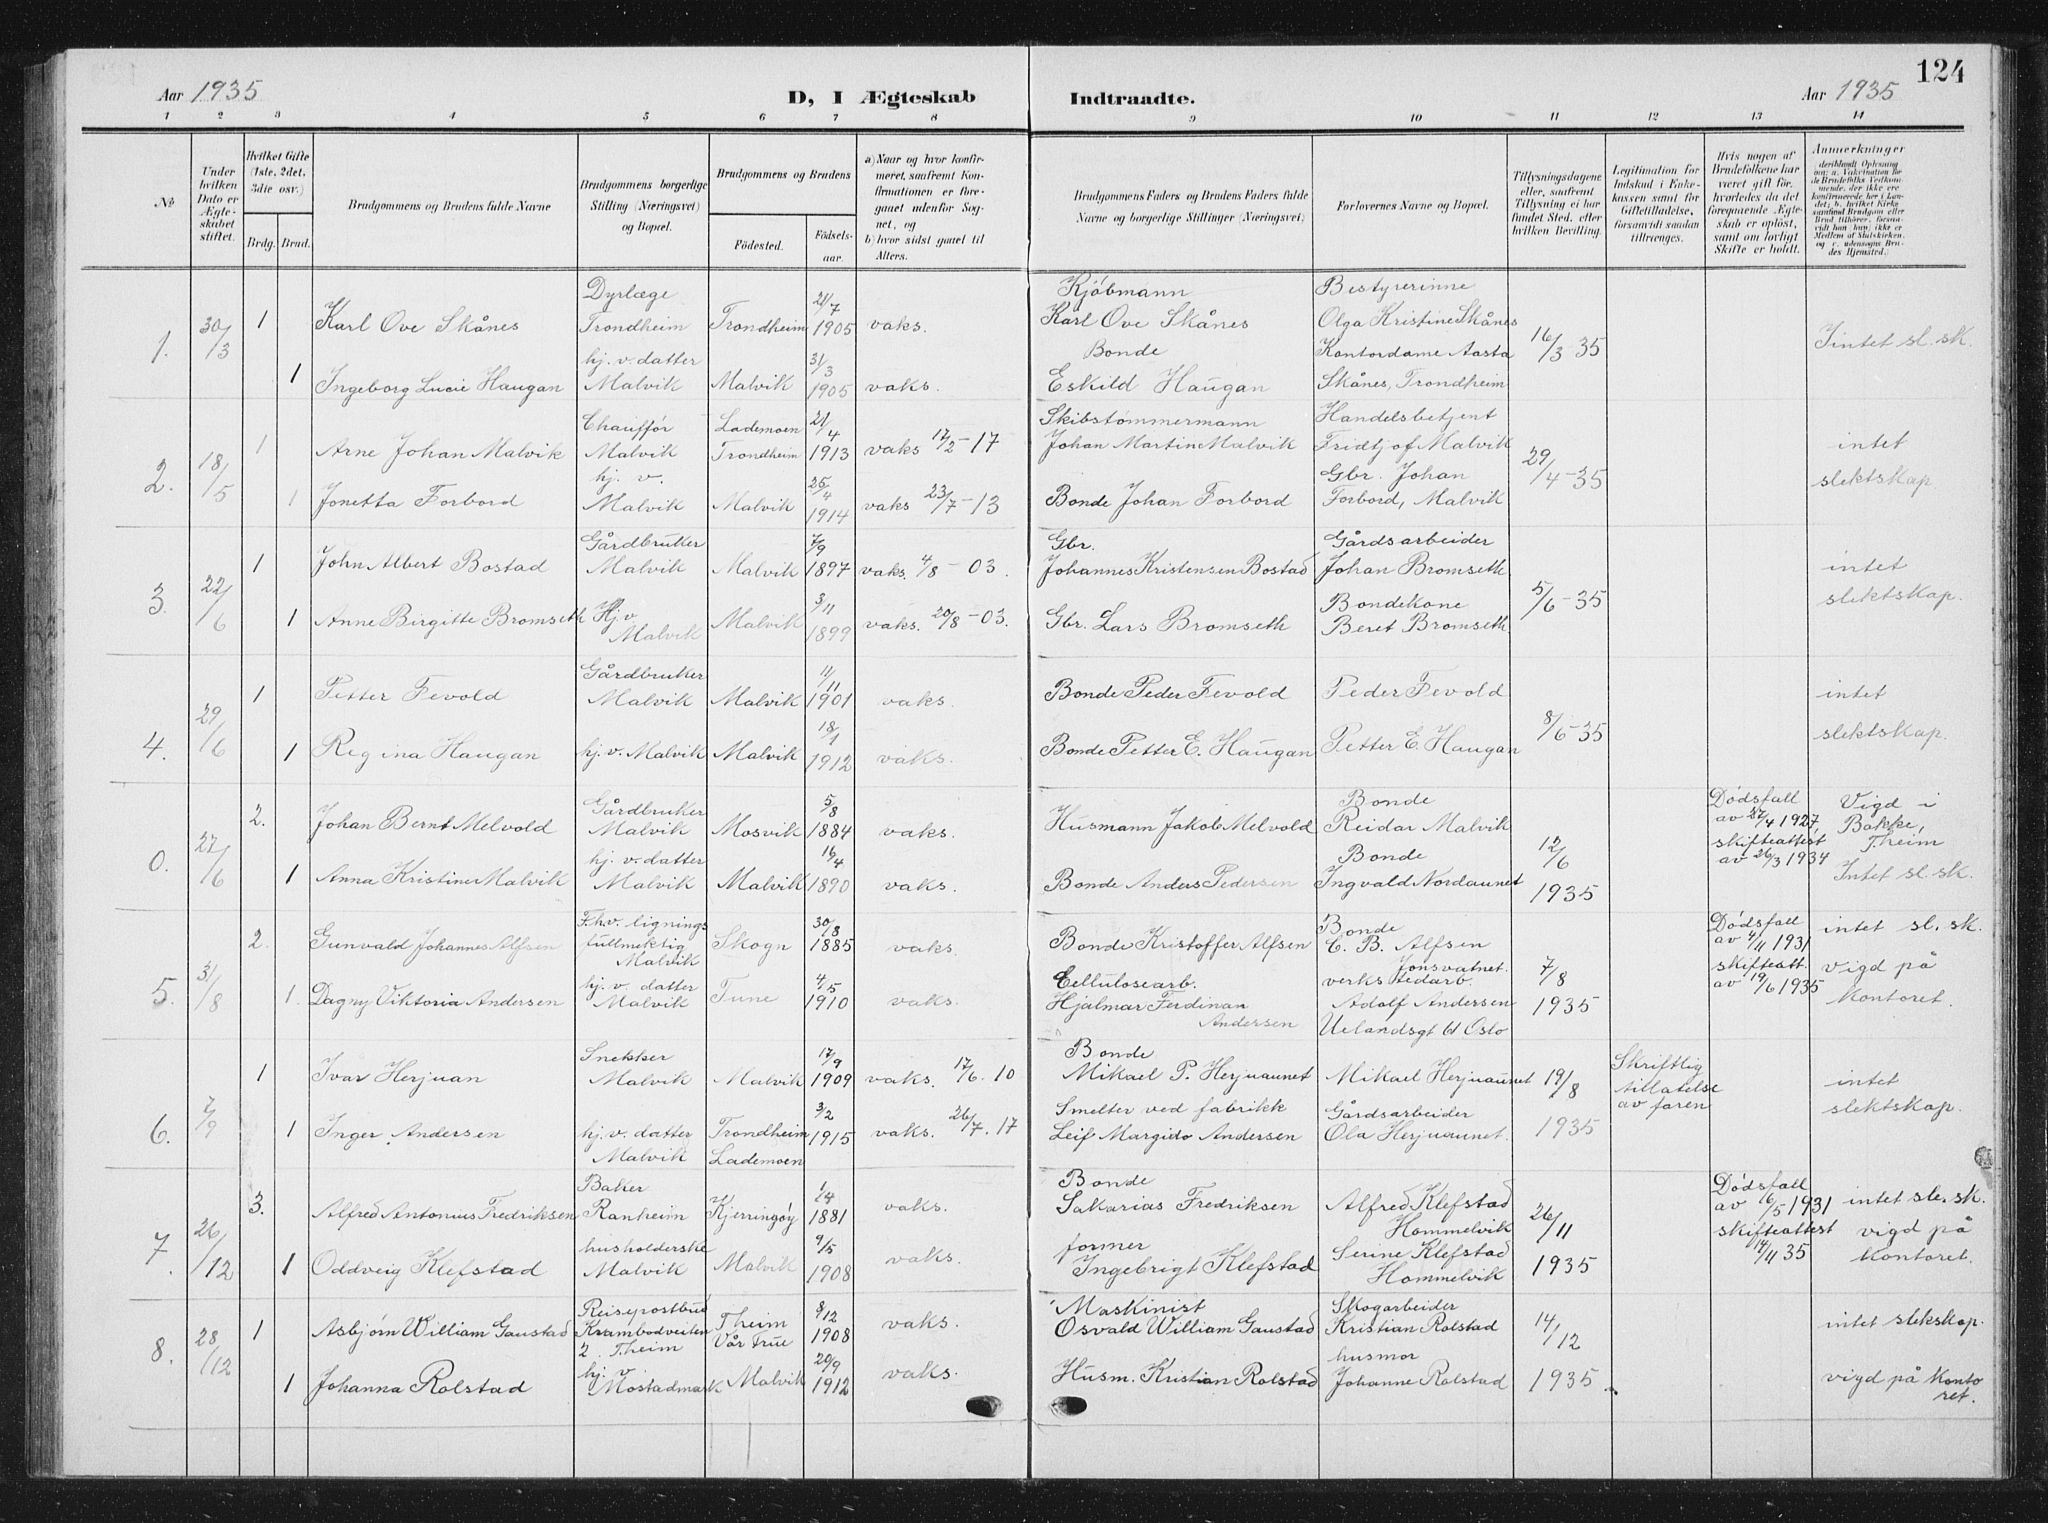 Aar 1935
D, I Ægteskab Indtraadte.
Aar 1935
124
1 2 3 4 5 6 7 8 9 10 11 12 13 14
№
Under hvilken Dato er Ægteskabet stiftet.
Hvilket Gifte (1ste, 2det, 3die osr.)
Brdg. Brud.
Brudgommens og Brudens fulde Navne
Brudgommens borgerlige Stilling (Næringsvei) og Bopæl.
Brudgommens og Brudens
Fødested. Fødselsaar.
a) Naar og hvor konfirmeret, saafremt Konfirmationen er foregaaet udenfor Sognet, og
b) hvor sidst gaaet til Alters.
Brudgommens Faders og Brudens Faders fulde Navne og borgerlige Stillinger (Næringsvei)
Forlovernes Navne og Bopæl.
Tillysningsdagene eller, saafremt Tillysning ei har fundet Sted, efter hvilken Bevilling.
Legitimation for Indskud i Enkekassen samt for Giftetilladelse, forsaavidt saadan tiltrænges.
Hvis nogen af Brudefolkene har været gift før, hvorledes da det foregaaende Ægteskab er opløst, samt om lovligt Skifte er holdt.
Anmerkninger
1. 30/3 1 Karl Ove Skånes Dyrlæge Trondheim Trondheim 21/7 1905 vaks. Kjøbmann Karl Ove Skånes Bestyrerinne Olga Kristine Skånes 16/3-35 Intet sl. sk.
1 Ingeborg Lucie Haugan hj. v. datter Malvik Malvik 31/3 1905 vaks. Bonde Eskild Haugan Kontordame Aasta Skånes, Trondheim
2. 18/5 1 Arne Johan Malvik Chauffør Malvik Lademoen Trondheim 21/4 1913 vaks 17/2-17 Skibstømmermann Johan Martin Malvik Handelsbetjent Fridtjof Malvik 29/4-35 intet slektskap.
1 Jonetta Forbord hj. v. Malvik Malvik 25/4 1914 vaks 23/7-13 Bonde Johan Forbord Gbr. Johan Forbord, Malvik
3. 22/6 1 John Albert Bostad Gårdbruker Malvik Malvik 7/9 1897 vaks. 4/8-03. Gbr. Johannes Kristensen Bostad Gårdsarbeider Johan Bromseth 5/6-35 intet slektskap.
1 Anne Birgitte Bromseth Hj. v. Malvik Malvik 3/11 1899 vaks. 20/8-03. Gbr. Lars Bromseth Bondekone Beret Bromseth
4. 29/6 1 Petter Fevold Gårdbruker Malvik Malvik 11/11 1901 vaks. Bonde Peder Fevold Peder Fevold 8/6-35 intet slektskap.
1 Regina Haugan hj. v. Malvik Malvik 18/1 1912 vaks. Bonde Petter E. Haugan Petter E. Haugan
0. 27/6 2. Johan Bernt Melvold Gårdbruker Malvik Mosvik 5/8 1884 vaks. Husmann Jakob Melvold Bonde Reidar Malvik 12/6 1935 Dødsfall av 27/4 1927, skifteattest av 26/3 1934 Vigd i Bakke, Theim Intet sl. sk.
1 Anna Kristine Malvik hj. v. datter Malvik Malvik 16/4 1890 vaks. Bonde Anders Pedersen Bonde Ingvald Nordaunet
5. 31/8 2. Gunvald Johannes Alfsen F.h.v. ligningsfullmektig Malvik Skogn 30/8 1885 vaks. Bonde Kristoffer Alfsen Bonde C. B. Alfsen Jonsvatnet. 7/8 1935 Dødsfall av 4/11 1931 skifteatt. av 19/6 1935 intet sl. sk. vigd på kontoret.
1. Dagny Viktoria Andersen hj. v. datter Malvik Tune 4/5 1910 vaks. Cellulosearb. Hjalmar Ferdinan Andersen verkstedarb. Adolf Andersen Uelandsgt 61 Oslo
6. 7/9 1 Ivar Herjuan Snekker Malvik Malvik 17/9 1909 vaks. 17/6. 10 Bonde Mikael P. Herjuaunet Mikael Herjuaunet 19/8 1935 Skriftlig tillatelse av faren intet slektskap.
1 Inger Andersen hj. v. datter Malvik Trondheim Lademoen 3/2 1915 vaks. 26/7. 17 Smelter ved fabrikk Leif Margido Andersen Gårdsarbeider Ola Herjuaunet.
7. 26/12 3. Alfred Antonius Fredriksen Baker Ranheim Kjerringøy 1/24 1881 vaks. Bonde Sakarias Fredriksen Alfred Klefstad Hommelvik 26/11 1935 Dødsfall av 16/5 1931 skifteattest 14/11 35 intet sle. sk. vigd på kontoret.
1 Oddveig Klefstad husholderske Malvik Malvik 9/5 1908 vaks. former Ingebrigt Klefstad Serine Klefstad Hommelvik
8. 28/12 1 Asbjørn William Gaustad Reisepostbud Krambodveiten 2 Theim Theim Vår Frue 8/12 1908 vaks. Maskinist Osvald William Gaustad Skogarbeider Kristian Rolstad 14/12 1935 intet slekskap. vigd på kontoret.
1 Johanna Rolstad hj. v. Mostadmark Malvik 20/9 1912 vaks. Husm. Kristian Rolstad husmor Johanne Rolstad